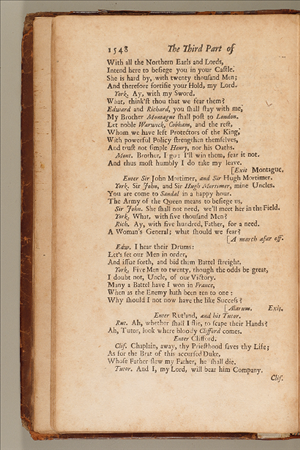 1548 The Third Part of
With all the Northern Earls and Lords,
Intend here to besiege you in your Castle.
She is hard by, with twenty thousand Men;
And therefore fortifie your Hold, my Lord.
York. Ay, with my Sword.
What, think'st thou that we fear them?
Edward and Richard, you shall stay with me,
My Brother Montague shall post to London.
Let noble Warwick, Cobham, and the rest,
Whom we have left Protectors of the King,
With powerful Policy strengthen themselves,
And trust not simple Henry, nor his Oaths.
Mont. Brother, I go: I'll win them, fear it not.
And thus most humbly I do take my leave.
[Exit Montague.
Enter Sir John Mortimer, and Sir Hugh Mortimer.
York. Sir John, and Sir Hugh Mortimer, mine Uncles.
You are come to Sandal in a happy hour.
The Army of the Queen means to besiege us.
Sir John. She shall not need, we'll meet her in the Field.
York. What, with five thousand Men?
Rich. Ay, with five hundred, Father, for a need.
A Woman's General; what should we fear?
[A march afar off.
Edw. I hear their Drums:
Let's set our Men in order,
And issue forth, and bid them Battel streight.
York. Five Men to twenty, though the odds be great,
I doubt not, Uncle, of our Victory.
Many a Battel have I won in France,
When as the Enemy hath been ten to one:
Why should I not now have the like Success?
[Alarum. Exit.
Enter Rutland, and his Tutor.
Rut. Ah, whether shall I flie, to scape their Hands?
Ah, Tutor, look where bloody Clifford comes.
Enter Clifford.
Clif. Chaplain, away, thy Priesthood saves thy Life;
As for the Brat of this accursed Duke,
Whose Father slew my Father, he shall die.
Tutor. And I, my Lord, will bear him Company.
Clif.